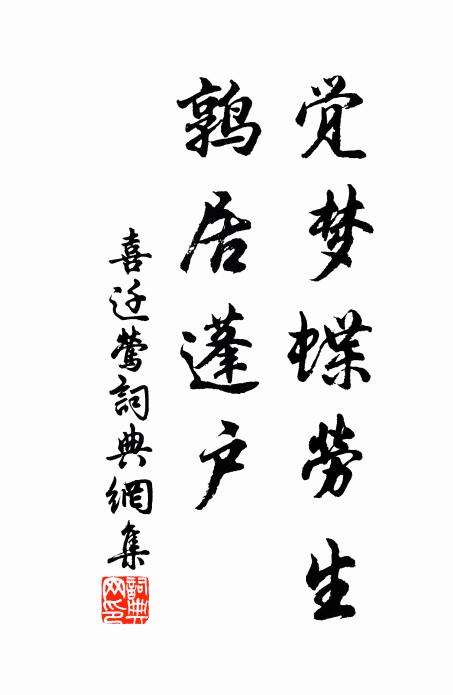 觉梦蝶劳生
鹑居蓬户
喜迁莺詞典網集
詞典网印